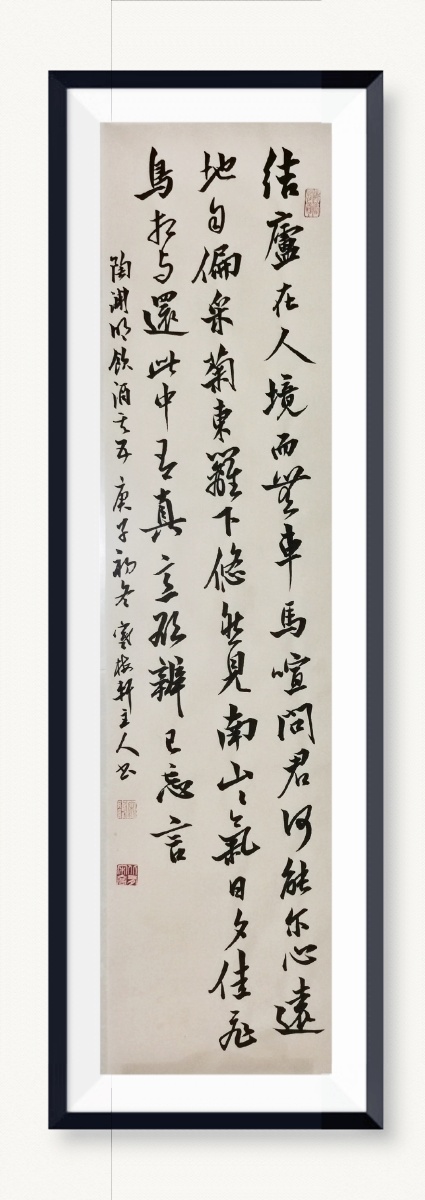 结廬在人境而無車馬喧问君何能尔心遠
地自偏采菊東籬下悠然見南山山氣日夕佳飛
鳥相与還此中有真意欲辨已忘言
陶渊明飲酒其五 庚子初冬 寒梅轩主人书